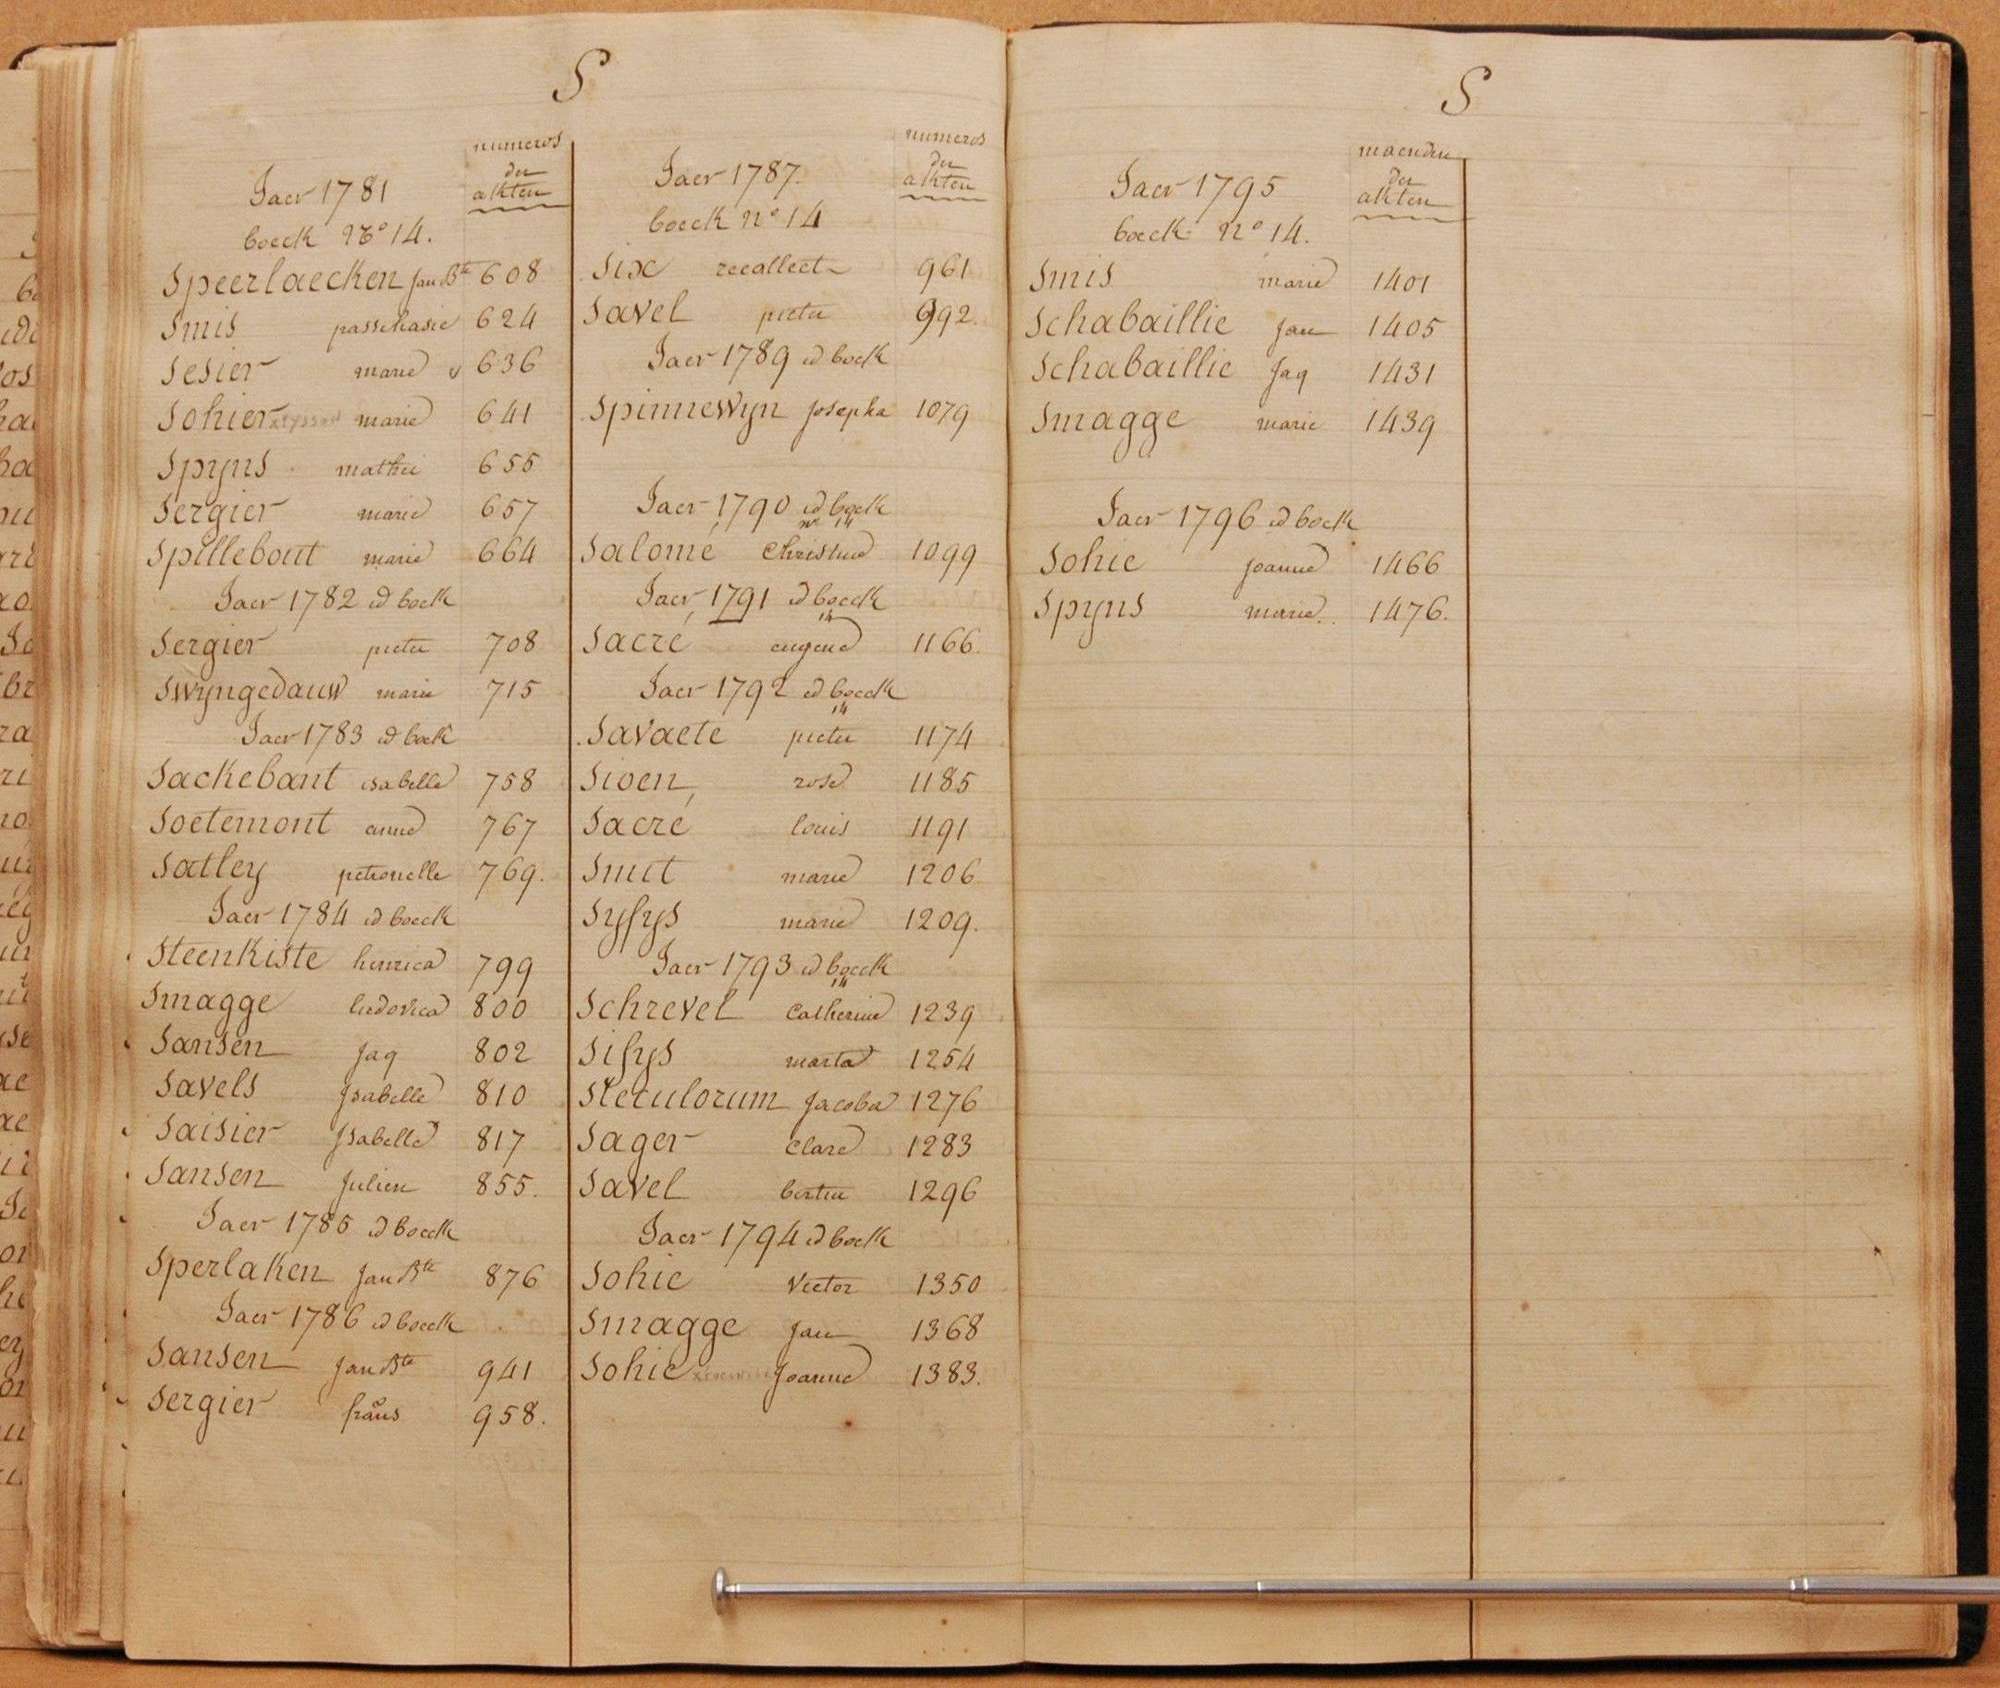 S
numeros
der
akten
Jaer 1781
boeck No 14.
Speerlaecken Jan Bte 608
Smis passchasie 624
Sesier marie 636
Sohier marie 641
Spyns mathei 655
Sergier marie 657
Spillebout marie 664
Jaer 1782 id boek
Sergier pieter 708
Swyngedauw marie 715
Jaer 1783 id boek
Sackebant isabelle 758
Soetemont anne 767
Satley petronelle 769.
Jaer 1784 id boeck
Steenkiste henrica 799
Smagge ludovica 800
Sansen Jaq 802
Savels Jsabelle 810
Saisier Jsabelle 817
Sansen Julien 855.
Jaer 1785 id boeck
Sperlaken Jan Bte 876
Jaer 1786 id boeck
Sansen Jan Bte 941
Sergier frans 958.
numeros
der
akten
Jaer 1787.
boeck no 14
Six recollect 961
Savel pieter 992.
Jaer 1789 id boek
Spinnewyn Josepha 1079
Jaer 1790 id boek
no 14
Salomé Christine 1099
Jaer 1791 id boeck
14
Sacré eugene 1166.
Jaer 1792 id boeck
14
Savaete pieter 1174
Sioen rose 1185
Sacré louis 1191
Smit marie 1206
Sysys marie 1209.
Jaer 1793 id boeck
14
Schrevel Catherine 1239
Sisys marta 1254
Steculorum Jacoba 1276
Sager Clare 1283
Savel bertin 1296
Jaer 1794 id boek
Sohie Victor 1350
Smagge Jan 1368
Sohie Joanne 1383.
S
der
akten
Jaer 1795
boeck no 14.
Smis marie 1401
Schabaillie Jan 1405
Schabaillie Jaq 1431
Smagge marie 1439
Jaer 1796 id boek
Sohie Joanne 1466
Spyns marie 1476.